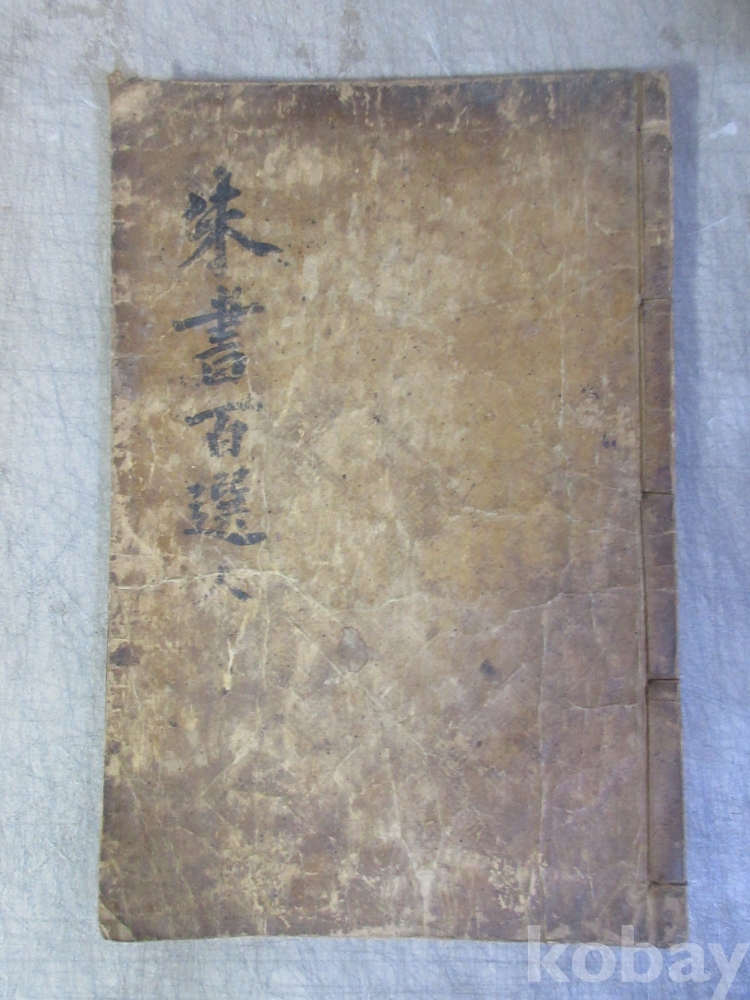 朱書百選
kobay